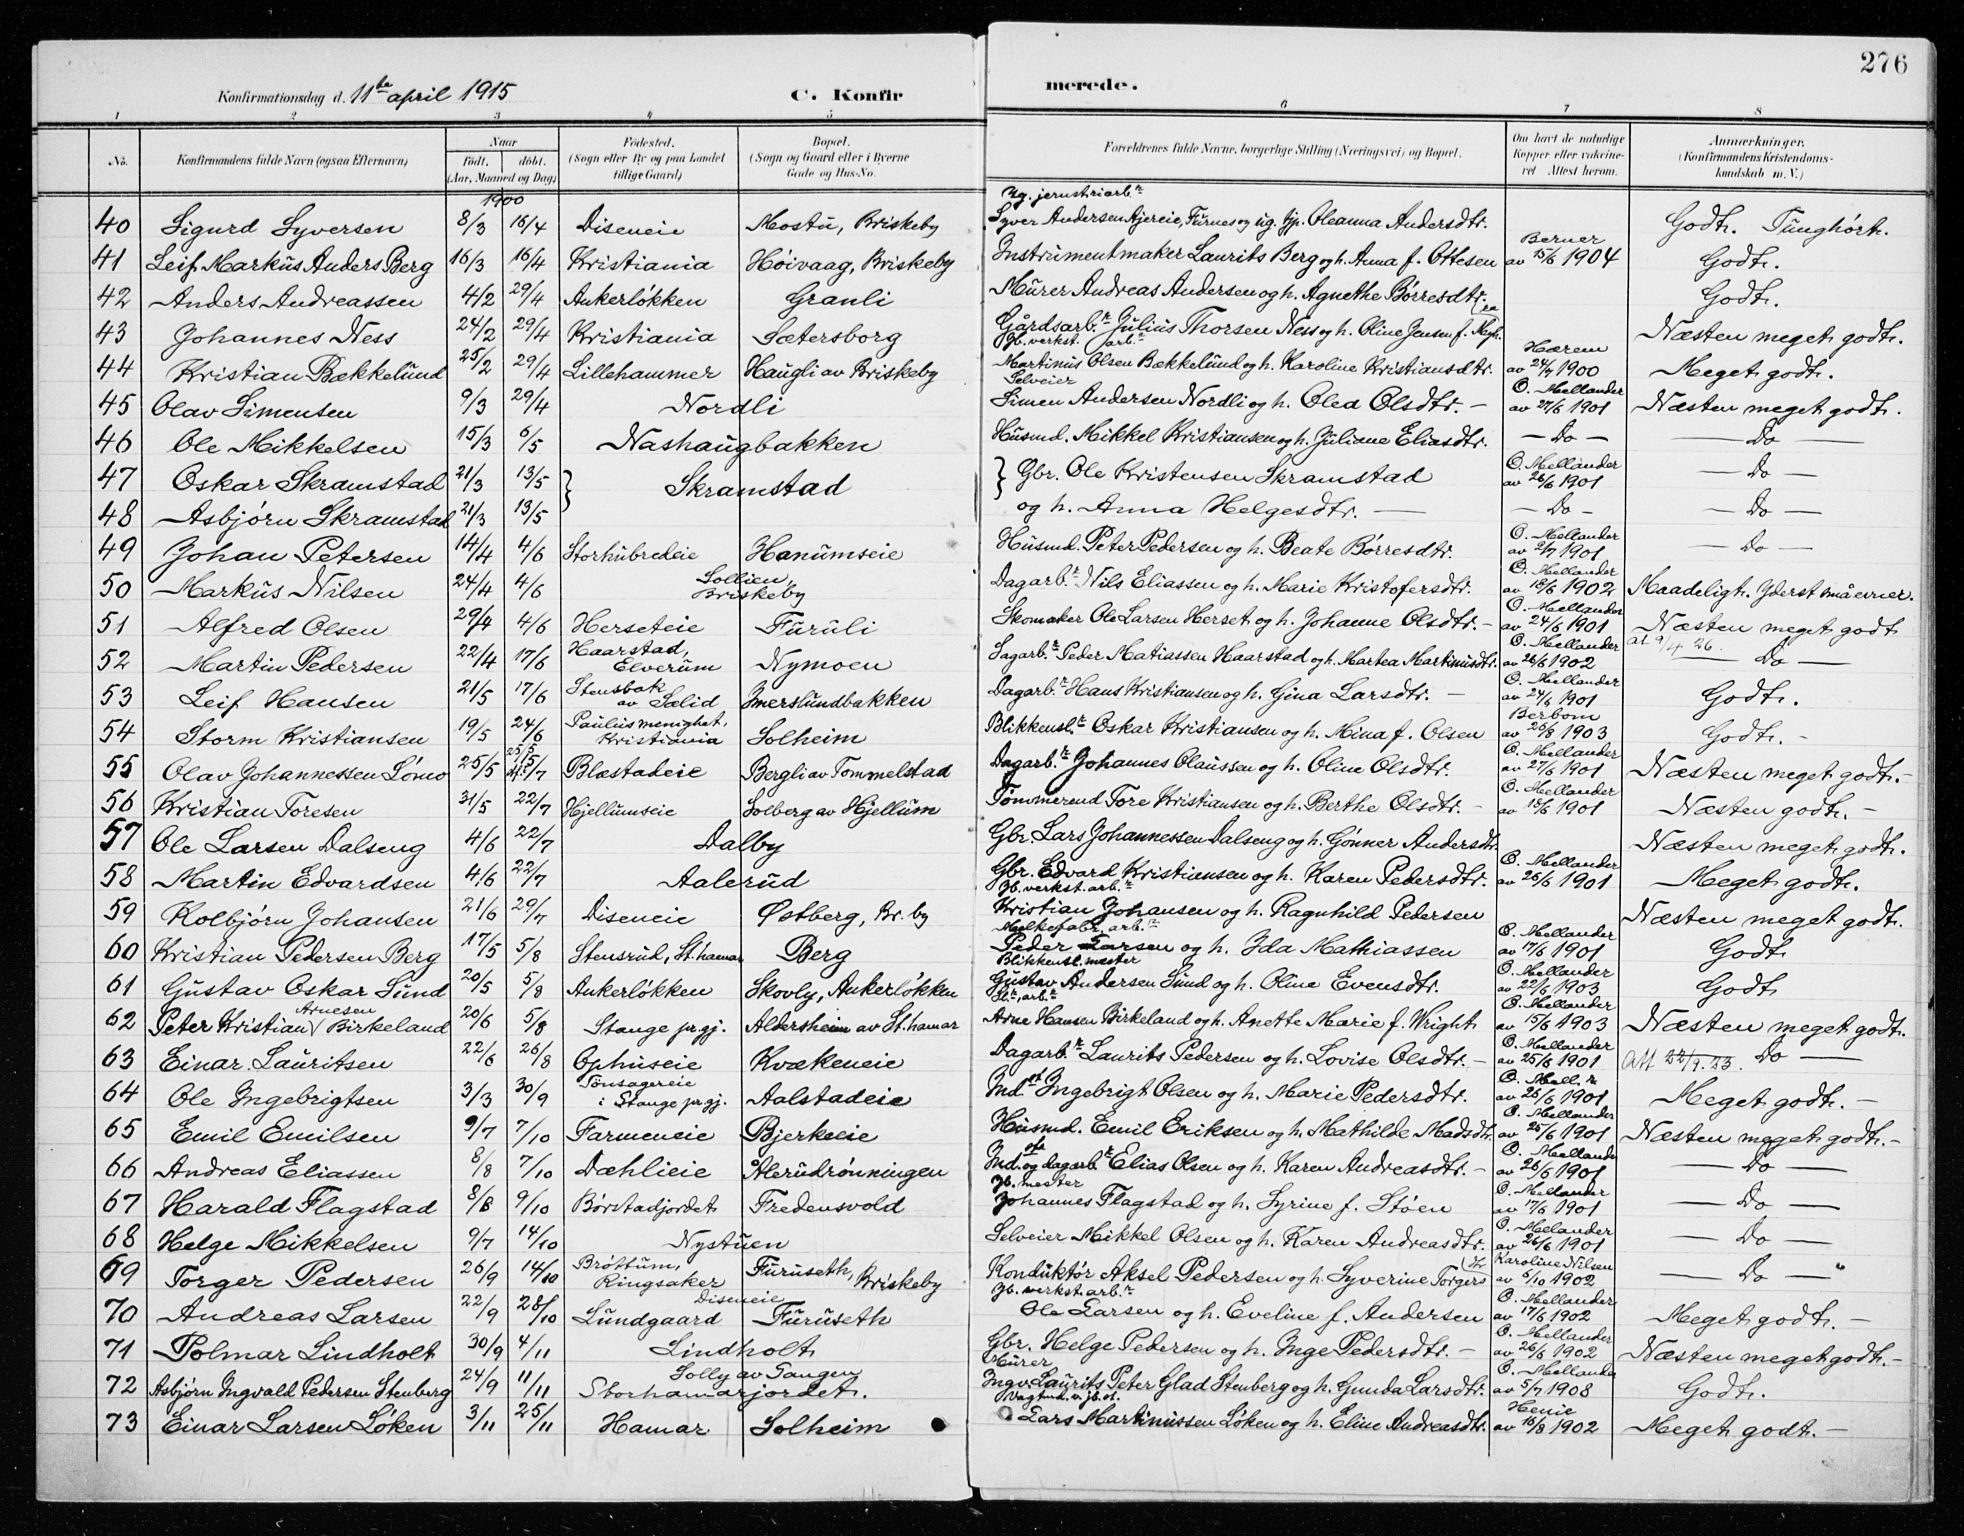 276
Konfirmationsdag d. 11te april 1915 C. Konfirmerede.
1 2 3 4 5 6 7 8
No. Konfirmandens fulde Navn (ogsaa Efternavn) Naar født. døbt. (Aar, Maaned og Dag) Fødested. (Sogn eller By og paa Landet tillige Gaard) Bopæl. (Sogn og Gaard eller i Byerne Gade og Hus-No. Forældrenes fulde Navne, borgerlige Stilling (Næringsvei) og Bopæl. Om havt de naturlige Kopper eller vaksineret. Attest herom. Anmærkninger. (Konfirmandens Kristendomskundskab m. V.)
1900
40 Sigurd Syversen 8/3 16/4 Diseneie Mostu, Briskeby Ug. jernstriarb.r Syver Andersen Ajereie, Furnes og ug. tjp. Oleanna Andersdtr. Godt. Tunghørt.
41 Leif Markus Anders Berg 16/3 16/4 Kristiania Høivaag, Briskeby Instrumentmaker Laurits Berg og h. Anna f. Ottesen Berner av 15/6 1904 Godt.
42 Anders Andreassen 4/2 29/4 Ankerløkken Granli Murer Andreas Andersen og h. Agnethe Børresdtr. Godt.
43 Johannes Ness 24/2 29/4 Kristiania Sætersborg Gårdsarb.r Julius Thorsen Ness og h. Oline Jensen f. Næsten meget godt.
44 Kristian Bækkelund 25/2 29/4 Lillehammer Haugli av Briskeby Jb. verkst. arb.r Martinus Olsen Bækkelund og h. Karoline Kristiansdtr. Hærem av 24/4 1900 Meget godt.
45 Olav Simensen 9/3 29/4 Nordli Selveier Simen Andersen Nordli og h. Olea Olsdtr. — O. Mellander av 27/6 1901 Næsten meget godt.
46 Ole Mikkelsen 15/3 6/5 Nashaugbakken Husmd. Mikkel Kristiansen og h. Juliane Eliasdtr. — Do — — Do —
47 Oskar Skramstad 21/3 13/5 } Skramstad } Gbr. Ole Kristensen Skramstad O. Mellander av 26/6 1901 — Do —
48 Asbjørn Skramstad 21/3 13/5 og h. Anna Helgesdtr. — — Do — — Do —
49 Johan Petersen 14/4 4/6 Storhubredeie Hanumseie Husmd. Peter Pedersen og h. Beate Børresdtr. O. Mellander av 2/7 1901 — Do —
50 Markus Nilsen 24/4 4/6 Sollien, Briskeby Dagarb.r Nils Eliassen og h. Marie Kristofersdtr. O. Mellander av 18/6 1902 Maadeligt. Yderst små evner.
51 Alfred Olsen 29/4 4/6 Herseteie Furuli Skomaker Ole Larsen Herset og h. Johanne Olsdtr. — O. Mellander av 24/6 1901 Næsten meget godt
52 Martin Pedersen 22/4 17/6 Haarstad, Elverum Nymoen Sagarb.r Peder Matiassen Haarstad og h. Martea Martinusdtr. O. Mellander av 26/6 1902 at 9/4 26. — Do —
53 Leif Hansen 21/5 17/6 Stensbak av Sælid Imerslundbakken Dagarb.r Hans Kristiansen og h. Gina Larsdtr. — O. Mellander av 24/6 1901 Godt.
54 Storm Kristiansen 19/5 24/6 Paulus menighet, Kristiania Solheim Blikkensl.r Oskar Kristiansen og h. Mina f. Olsen Berbom av 26/8 1903 Godt. —
55 Olav Johannessen Lømo 25/5 /7 Blæstadeie Bergli av Tommelstad Dagarb.r Johannes Olaussen og h. Oline Olsdtr. O. Mellander av 27/6 1901 Næsten meget godt. —
56 Kristian Toresen 31/5 22/7 Hjellumseie Solberg av Hjellum Tømmermd Tore Kristiansen og h. Berthe Olsdtr. — O. Mellander av 18/6 1901 Næsten godt. —
57 Ole Larsen Dalseng 4/6 22/7 Dalby Gbr. Lars Johannessen Dalseng og h. Gønner Andersdtr. Næsten meget godt.
58 Martin Edvardsen 4/6 22/7 Aalerud Gbr. Edvard Kristiansen og h. Karen Pedersdtr. O. Mellander av 26/6 1901 Meget godt.
59 Kolbjørn Johansen 21/6 29/7 Diseneie Østberg, Br.by Jb. verkst. arb.r Kristian Johansen og h. Ragnhild Pedersen Næsten meget godt.
60 Kristian Pedersen Berg 17/5 5/8 Stensrud, St.hamar Berg Melkefabr. arb.r Peder Larsen og h. Ida Mathiassen O. Mellander av 17/6 1901 Godt
61 Gustav Oskar Sund 20/5 5/8 Ankerløkken Skovly, Ankerløkken Blikkensl. mester Gustav Andersen Sund og h. Oline Evensdtr. O. Mellander av 22/6 1903 Godt
62 Peter Kristian Arnesen Birkeland 20/6 5/8 Stange pr.gj. Aldersheim av St.hamar arb.r Arne Hansen Birkeland og h. Anette Marie f. Wright O. Mellander av 15/6 1903 Næsten meget godt.
63 Einar Lauritsen 22/6 26/8 Ophuseie Kvækeneie Dagarb.r Laurits Pedersen og h. Lovise Olsdtr. — O. Mellander av 25/6 1901 Att 22/9. 23. Do —
64 Ole Ingebrigtsen 3/3 30/9 Tønsagereie i Stange pr.gj. Aalstadeie Ind.st Ingebrigt Olsen og h. Marie Pedersdtr. O. Mell.r av 26/6 1901 Meget godt. —
65 Emil Emilsen 9/7 7/10 Farmeneie Bjerkeie Husmd. Emil Eriksen og h. Mathilde Madsdtr. O. Mellander av 25/6 1901 Næsten meget godt. —
66 Andreas Eliassen 8/8 7/10 Dæhlieie Alerudrønningen Ind.ste og dagarb.r Elias Olsen og h. Karen Andreasdtr. — O. Mellander av 26/6 1901 — Do —
67 Harald Flagstad 8/8 9/10 Børstadjordet Fredensvold Jb. mester Johannes Flagstad og h. Syrine f. Støen O. Mellander av 17/6 1901 — Do —
68 Helge Mikkelsen 9/7 14/10 Nystuen Selveier Mikkel Olsen og h. Karen Andreasdtr. O. Mellander av 26/6 1901 — Do —
69 Torger Pedersen 26/9 14/10 Brøttum, Ringsaker Furuseth, Briskeby Konduktør Aksel Pedersen og h. Syverine Torgers Karoline Nilsen av 6/10 1902 — Do —
70 Andreas Larsen 22/9 28/10 Diseneie Lundgaard Furuseth Jb. verkst. arb.r Ole Larsen og h. Eveline f. Andersen O. Mellander av 17/6 1902 Meget godt. —
71 Polmar Lindholt 30/9 4/11 Lindholt Gbr. Helge Pedersen og h. Inge Pedersdtr. — O. Mellander av 26/6 1902 Næsten meget godt. —
72 Asbjørn Ingvald Pedersen Stenberg 24/9 11/11 Solly av Tangen Storhamarjordet. Murer Ingv. Laurits Peter Glad Stenberg og h. Gunda Larsdtr. O. Mellander av 5/7 1908 Godt.
73 Einar Larsen Løken 3/11 25/11 Hamar Solheim Vagtmd. v. jb. st. Lars Martinussen Løken og h. Eline Andreasdtr. Henie av 16/8 1902 Meget godt. —